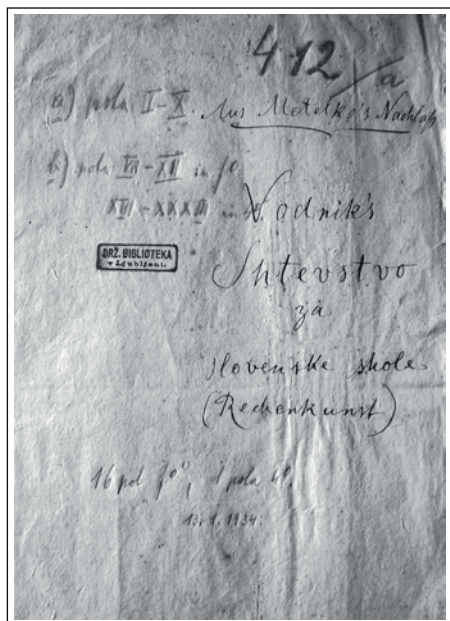 412/a
a) pola I-X. Aus Metelko's Nachlaß
b) pola VII-XII in fº
XIII-XXXIII in 4º.
Vodnik's
DRŽ. BIBLIOTEKA
v Ljubljani.
Shtevstvo
za
slovenske shole
(Rechenkunst)
16 pol fº, 1 pola 4º.
13.1.1934.